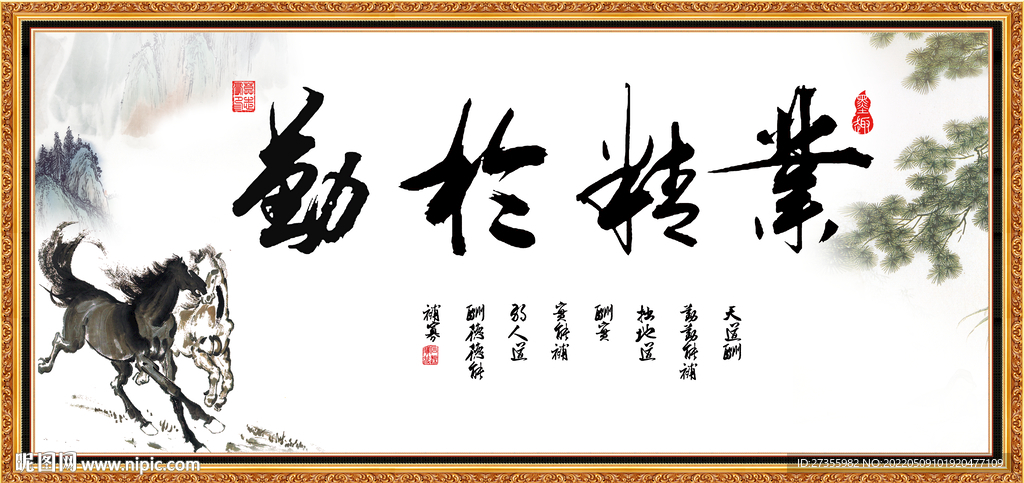 業精於勤
天道酬
勤勤能補
拙地道
酬實
實能補
弱人道
酬德德能
補寡
墨趣
昵图网 www.nipic.com
ID:27355982 NO:20220509101920477109